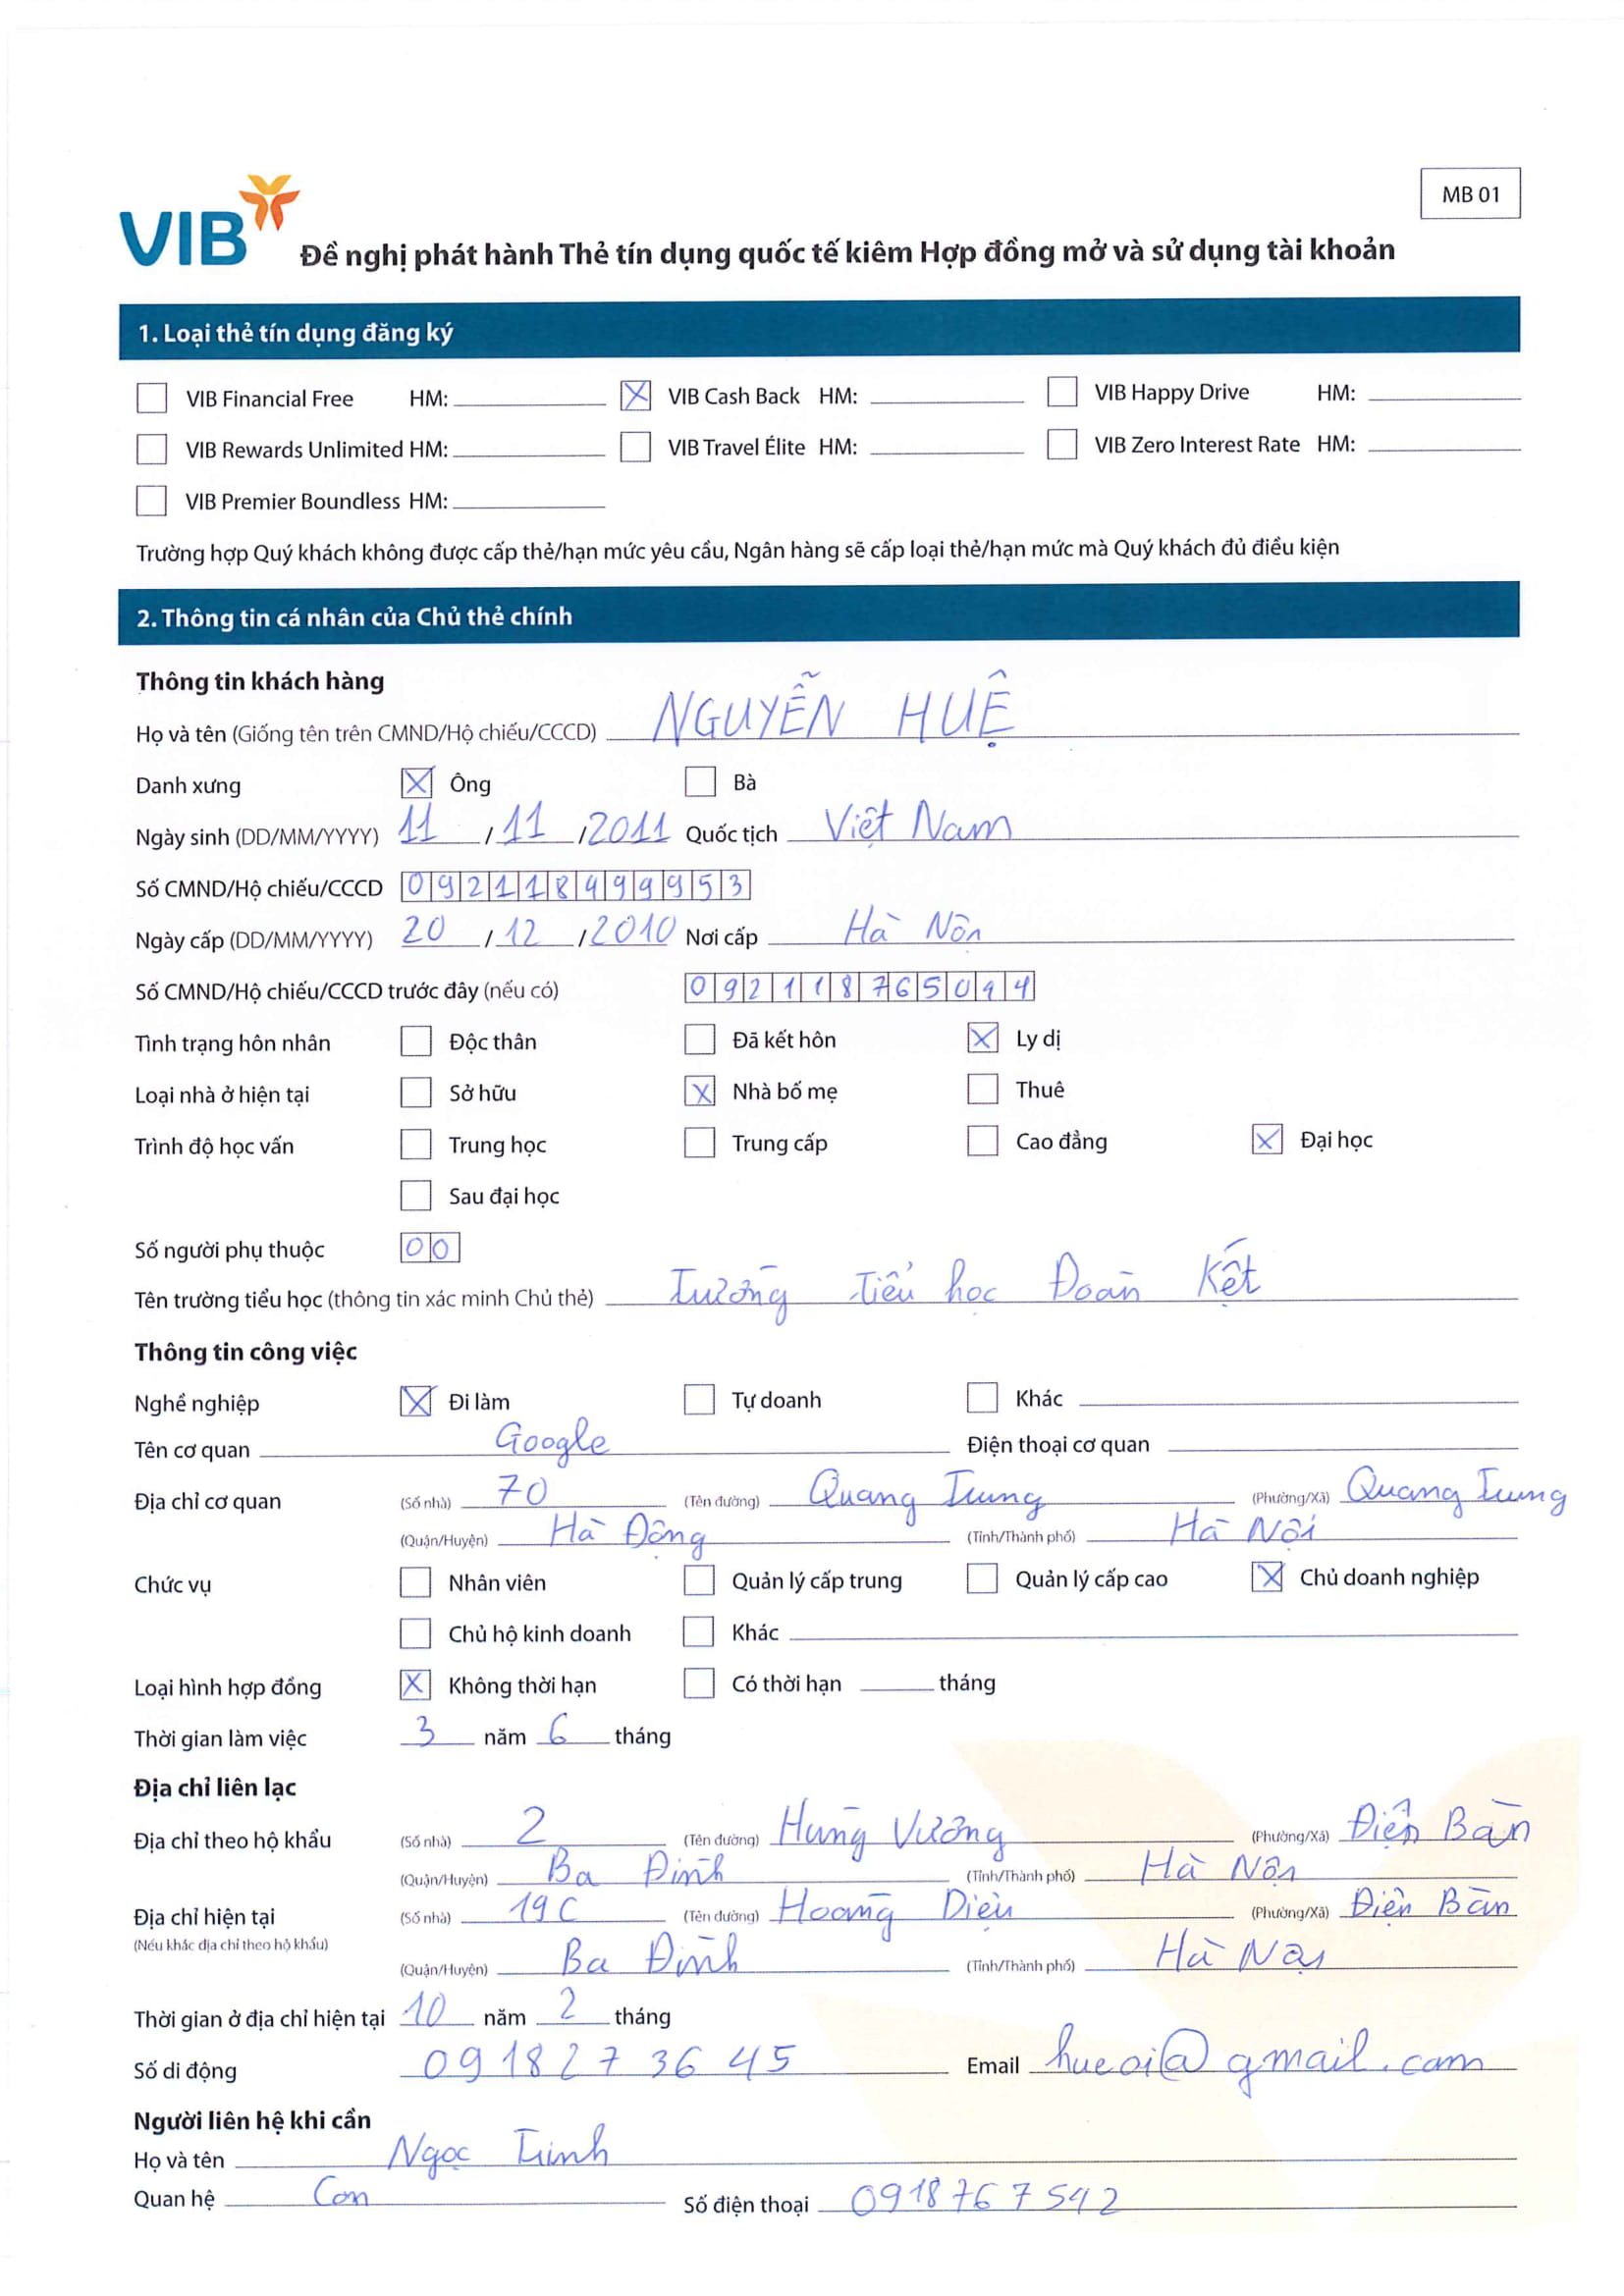 MB 01
VIB
Đề nghị phát hành Thẻ tín dụng quốc tế kiêm Hợp đồng mở và sử dụng tài khoản
1. Loại thẻ tín dụng đăng ký
VIB Financial Free HM: VIB Cash Back HM: VIB Happy Drive HM:
VIB Rewards Unlimited HM: VIB Travel Élite HM: VIB Zero Interest Rate HM:
VIB Premier Boundless HM:
Trường hợp Quý khách không được cấp thẻ/hạn mức yêu cầu, Ngân hàng sẽ cấp loại thẻ/hạn mức mà Quý khách đủ điều kiện
2. Thông tin cá nhân của Chủ thẻ chính
Thông tin khách hàng
Họ và tên (Giống tên trên CMND/Hộ chiếu/CCCD) NGUYỄN HUỆ
Danh xưng Ông Bà
Ngày sinh (DD/MM/YYYY) 11 / 11 / 2011 Quốc tịch Việt Nam
Số CMND/Hộ chiếu/CCCD 092118499953
Ngày cấp (DD/MM/YYYY) 20 / 12 / 2010 Nơi cấp Hà Nội
Số CMND/Hộ chiếu/CCCD trước đây (nếu có) 092118765094
Tình trạng hôn nhân Độc thân Đã kết hôn Ly dị
Loại nhà ở hiện tại Sở hữu Nhà bố mẹ Thuê
Trình độ học vấn Trung học Trung cấp Cao đẳng Đại học
Sau đại học
Số người phụ thuộc 00
Tên trường tiểu học (thông tin xác minh Chủ thẻ) Trường Tiểu học Đoàn Kết
Thông tin công việc
Nghề nghiệp Đi làm Tự doanh Khác
Tên cơ quan Google Điện thoại cơ quan
Địa chỉ cơ quan (Số nhà) 70 (Tên đường) Quang Trung (Phường/Xã) Quang Trung
(Quận/Huyện) Hà Đông (Tỉnh/Thành phố) Hà Nội
Chức vụ Nhân viên Quản lý cấp trung Quản lý cấp cao Chủ doanh nghiệp
Chủ hộ kinh doanh Khác
Loại hình hợp đồng Không thời hạn Có thời hạn tháng
Thời gian làm việc 3 năm 6 tháng
Địa chỉ liên lạc
Địa chỉ theo hộ khẩu (Số nhà) 2 (Tên đường) Hùng Vương (Phường/Xã) Điện Bàn
(Quận/Huyện) Ba Đình (Tỉnh/Thành phố) Hà Nội
Địa chỉ hiện tại (Số nhà) 19C (Tên đường) Hoàng Diệu (Phường/Xã) Điện Bàn
(Nếu khác địa chỉ theo hộ khẩu)
(Quận/Huyện) Ba Đình (Tỉnh/Thành phố) Hà Nội
Thời gian ở địa chỉ hiện tại 10 năm 2 tháng
Số di động 0918273645 Email hueoi@gmail.com
Người liên hệ khi cần
Họ và tên Ngọc Trinh
Quan hệ Con Số điện thoại 0918767542